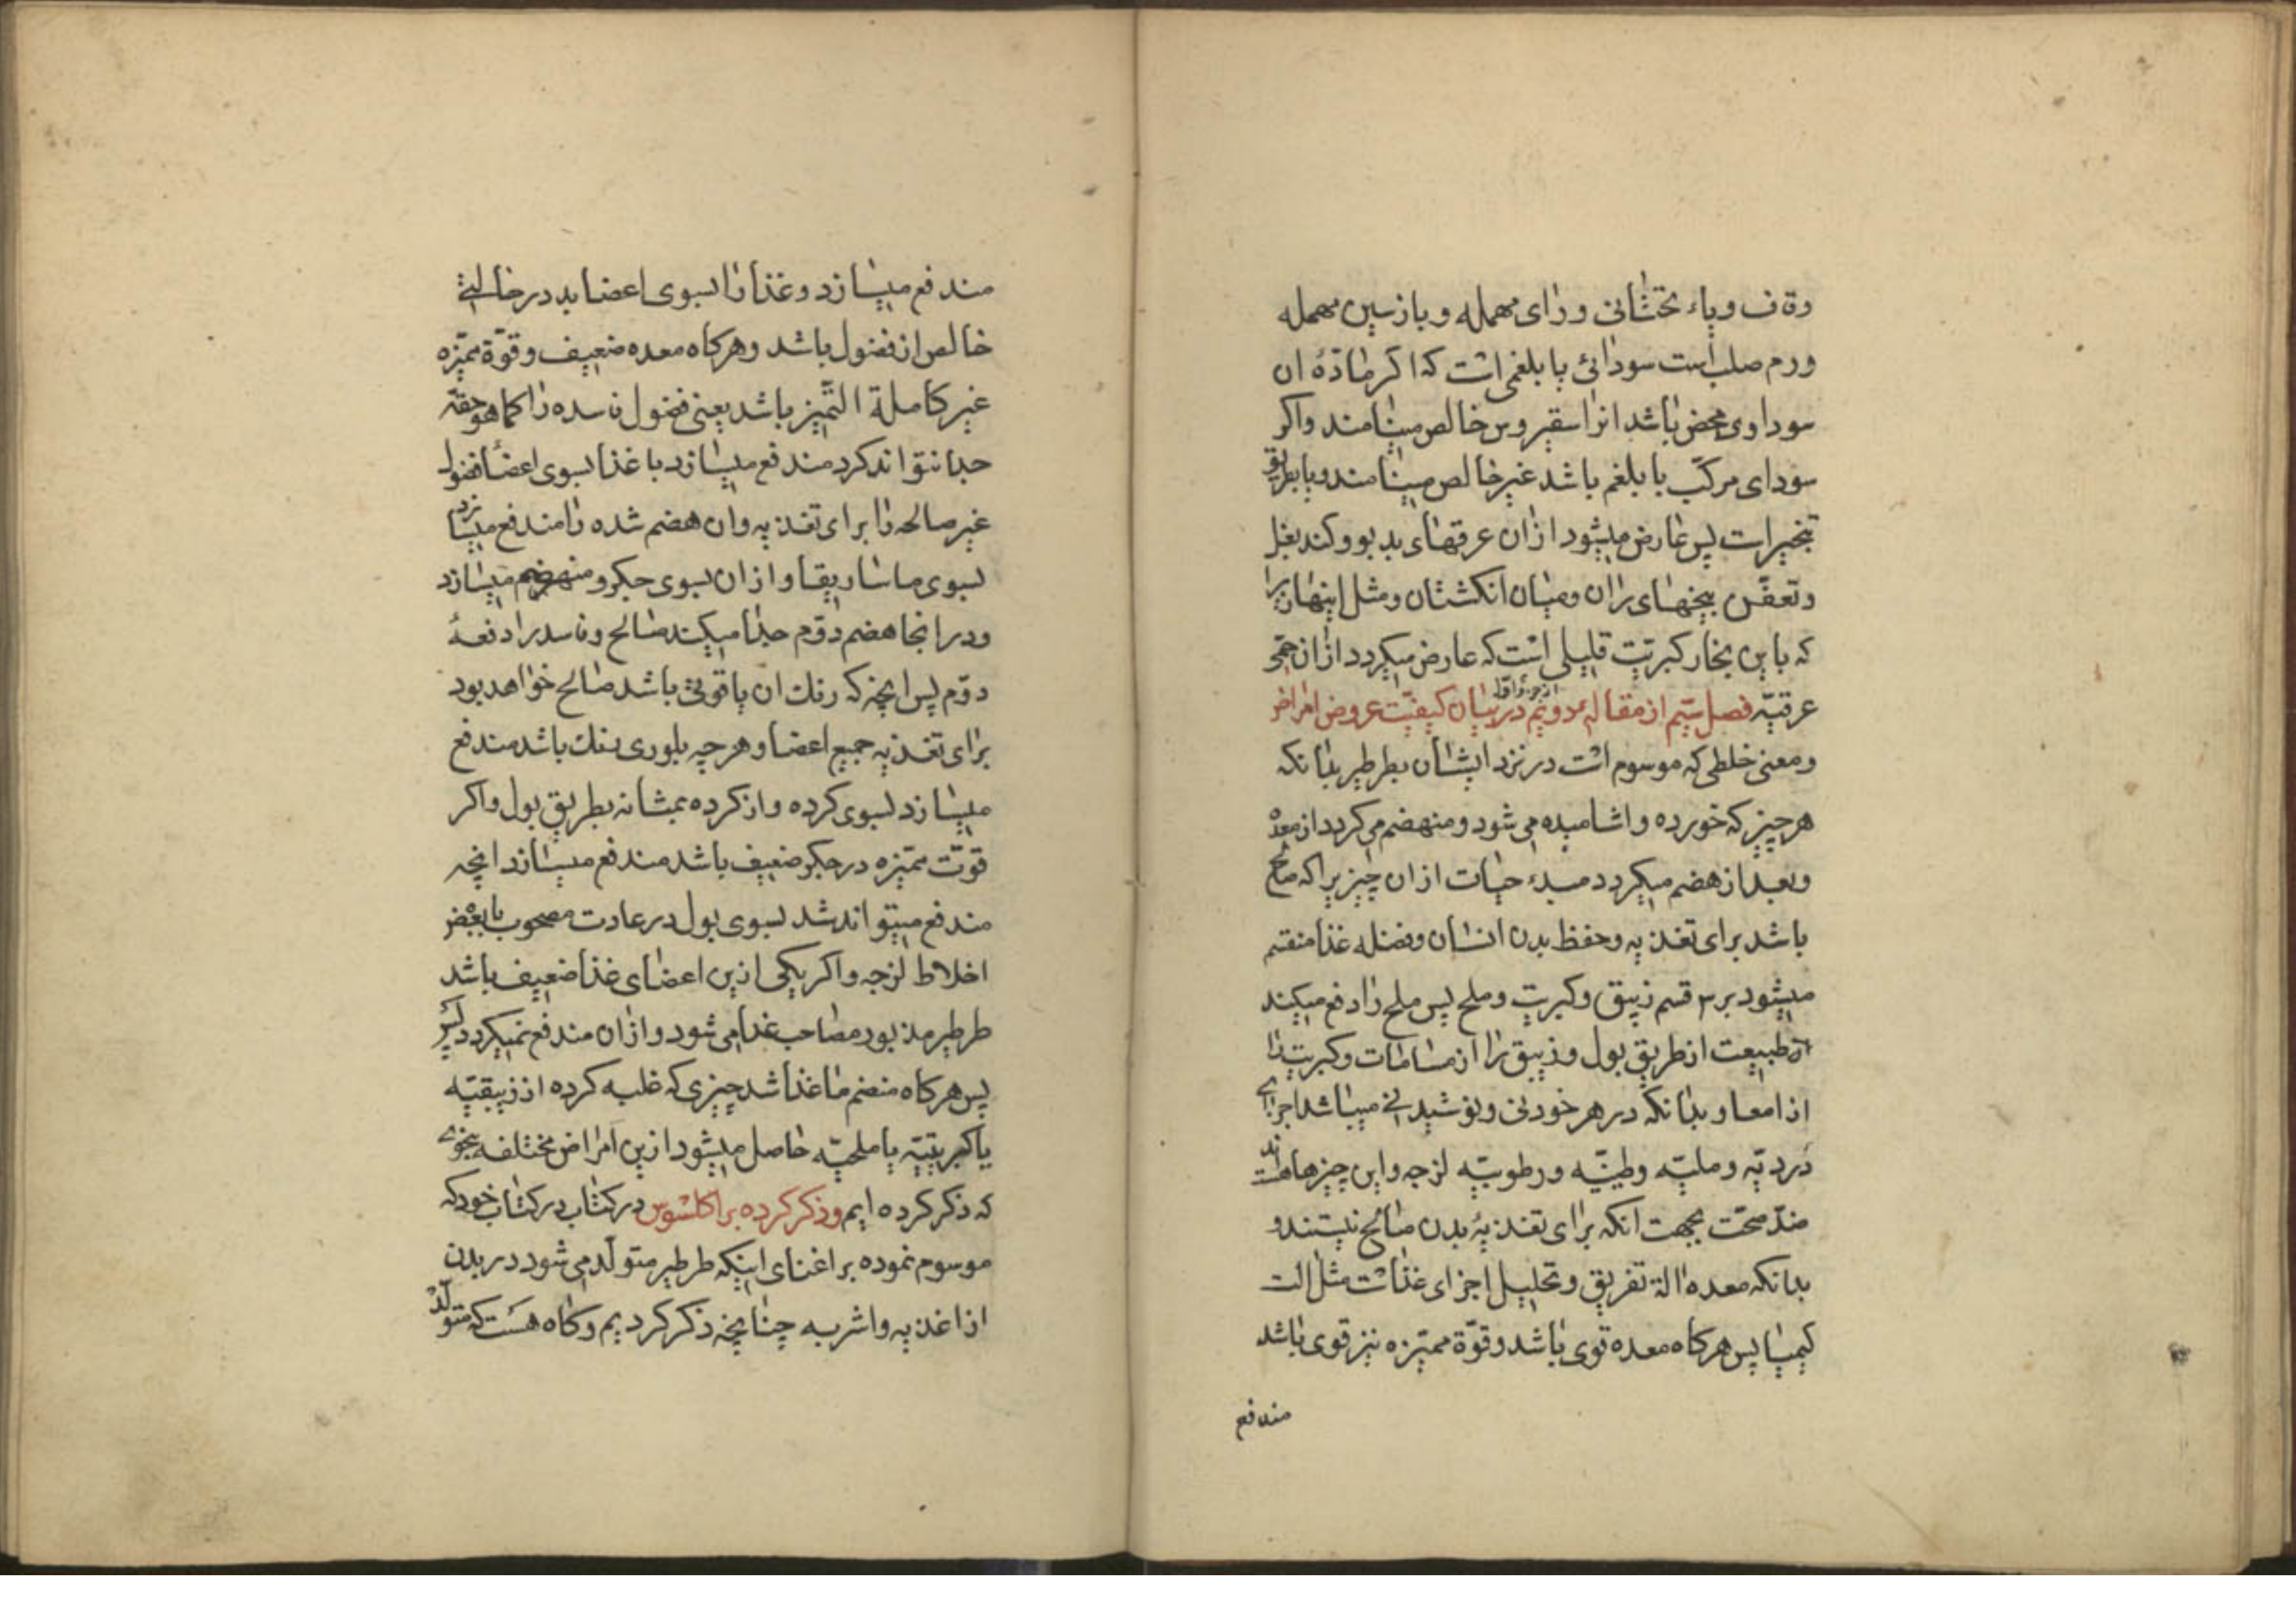 وقاف وياء تحتانى وراى مهمله وباز سين مهمله
ورم صلب است سودائى يا بلغمى است كه اكر مادّهٔ ان
سوداوى محض باشد انرا سقيروس خالص مينامند واكر
سوداى مركّب با بلغم باشد غير خالص مينامند ويا بطريق
تبخيرات پس عارض ميشود ازان عرقهاى بد بو وكند بغل
وتعفّن بيخهاى ران وميان انكشتان ومثل اينها زيرا
كه باين بخار كبريّت قليلى است كه عارض ميكردد ازان حمّى
عرقيّه فصل سيّم از مقالهٔ دويّم از جزو اوّل در بيان كيفيّت عروض امراض
ومعنى خلطى كه موسوم است در نزد ايشان بطرطير بدانكه
هر چيز كه خورده واشاميده مى شود ومنهضم مى كردد از معده
وبعد از هضم ميكردد مبدء حيات ازان چيزيرا كه صالح
باشد براى تغذيه وحفظ بدن انسان وفضله غذا منقسم
ميشود بر ٣ قسم زيبق وكبريت وملح پس ملح را دفع ميكند
طبيعت از طريق بول وزيبق را از مسامات وكبريت را
از امعا وبدانكه در هر خوردنى ونوشيدنى ميباشد اجزاى
دُرديّه وملحيّه وطينيّه ورطوبيّه لزجه واين چيزها هستند
ضدّ صحّت بجهت انكه براى تغذيهٔ بدن صالح نيستند و
بدانكه معده الة تفريق وتحليل اجزاى غذاست مثل الت
كيميا پس هركاه معده قوى باشد وقوّة مميّزه نيز قوى باشد
مندفع
مندفع ميسازد وغذا را بسوى اعضا بدر حالتى
خالص از فضول باشد وهركاه معده ضعيف وقوّة مميّزه
غير كاملة التّميز باشد يعنى فضول فاسده را كما هو حقّه
جدا نتواند كرد مندفع ميسازد با غذا بسوى اعضا فضول
غير صالحه را براى تغذيه وان هضم شده را مندفع ميسازد
بسوى ماساريقا واز ان بسوى جكر ومنهضم ميسازد
ودر انجا هضم دوّم جدا ميكند صالح وفاسد را دفعهٔ
دوّم پس انچيز كه رنك ان ياقوتى باشد صالح خواهد بود
براى تغذيه جميع اعضا وهرچه بلورى رنك باشد مندفع
ميسازد بسوى كرده واز كرده بمثانه بطريق بول واكر
قوّت مميّزه در جكر ضعيف باشد مندفع ميسازد انچه
مندفع ميتواند شد بسوى بول در عادت مصحوب با بعض
اخلاط لزجه واكر يكى ازين اعضاى غذا ضعيف باشد
طرطير مذبور مصاحب غذا مى شود وازان مندفع نميكردد
پس هركاه منضم با غذا شد چيزى كه غلبه كرده از زيبقيّه
يا كبريتيّه يا ملحيّه حاصل ميشود ازين امراض مختلفه بنحوى
كه ذكر كرده ايم وذكر كرده براكلسوس در كتاب در كتاب خود كه
موسوم نموده براغناى اينكه طرطير متولّد مى شود در بدن
از اغذيه واشربه چنانچه ذكر كرديم وكاه هست كه متولّد